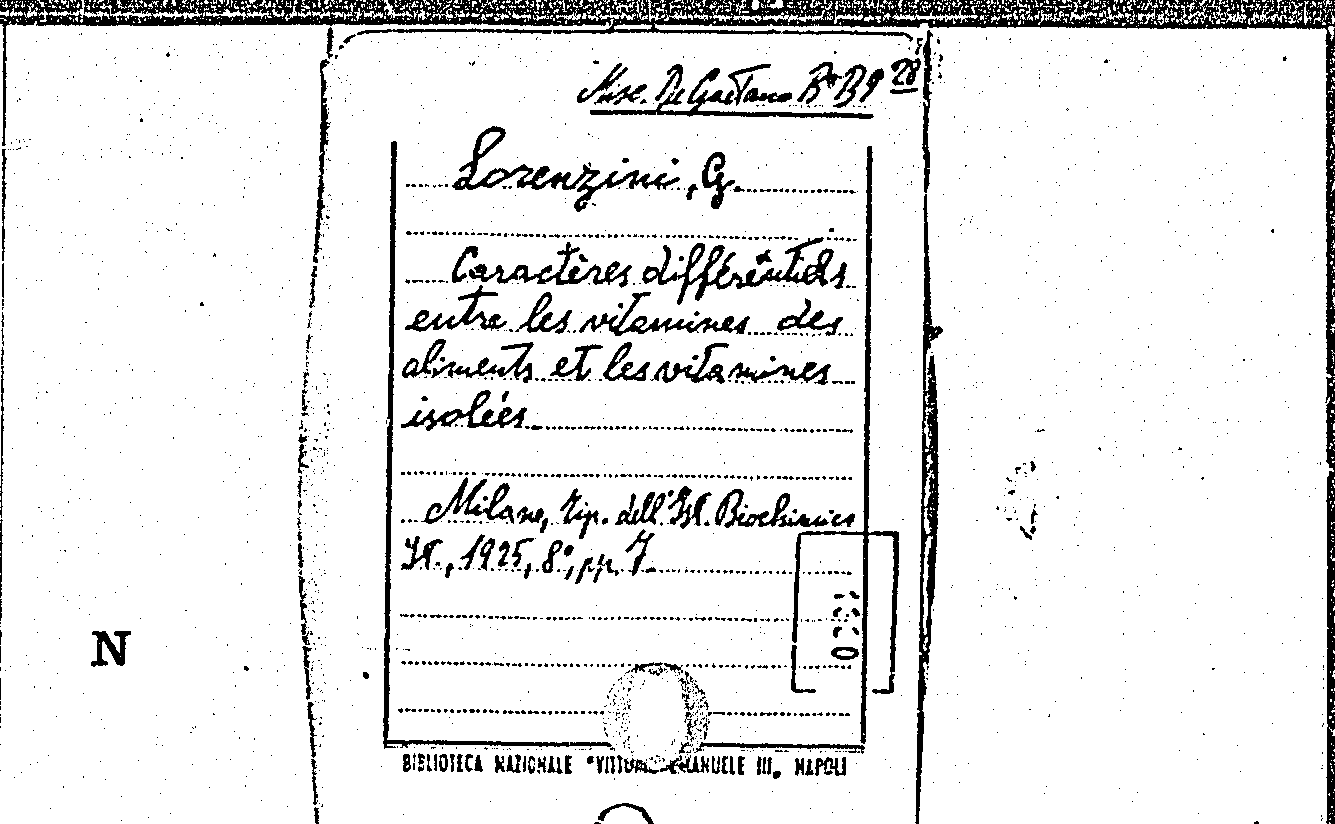 Misc. De Gaetano B° B9 28
Lorenzini, G.
Caractères différentiels
entre les vitamines des
aliments et les vitamines
isolées.
Milano, Tip. dell'Ist. Biochimico
It., 1925, 8°, pp. 7.
N
BIBLIOTECA NAZIONALE "VITTORIO EMANUELE III„ NAPOLI